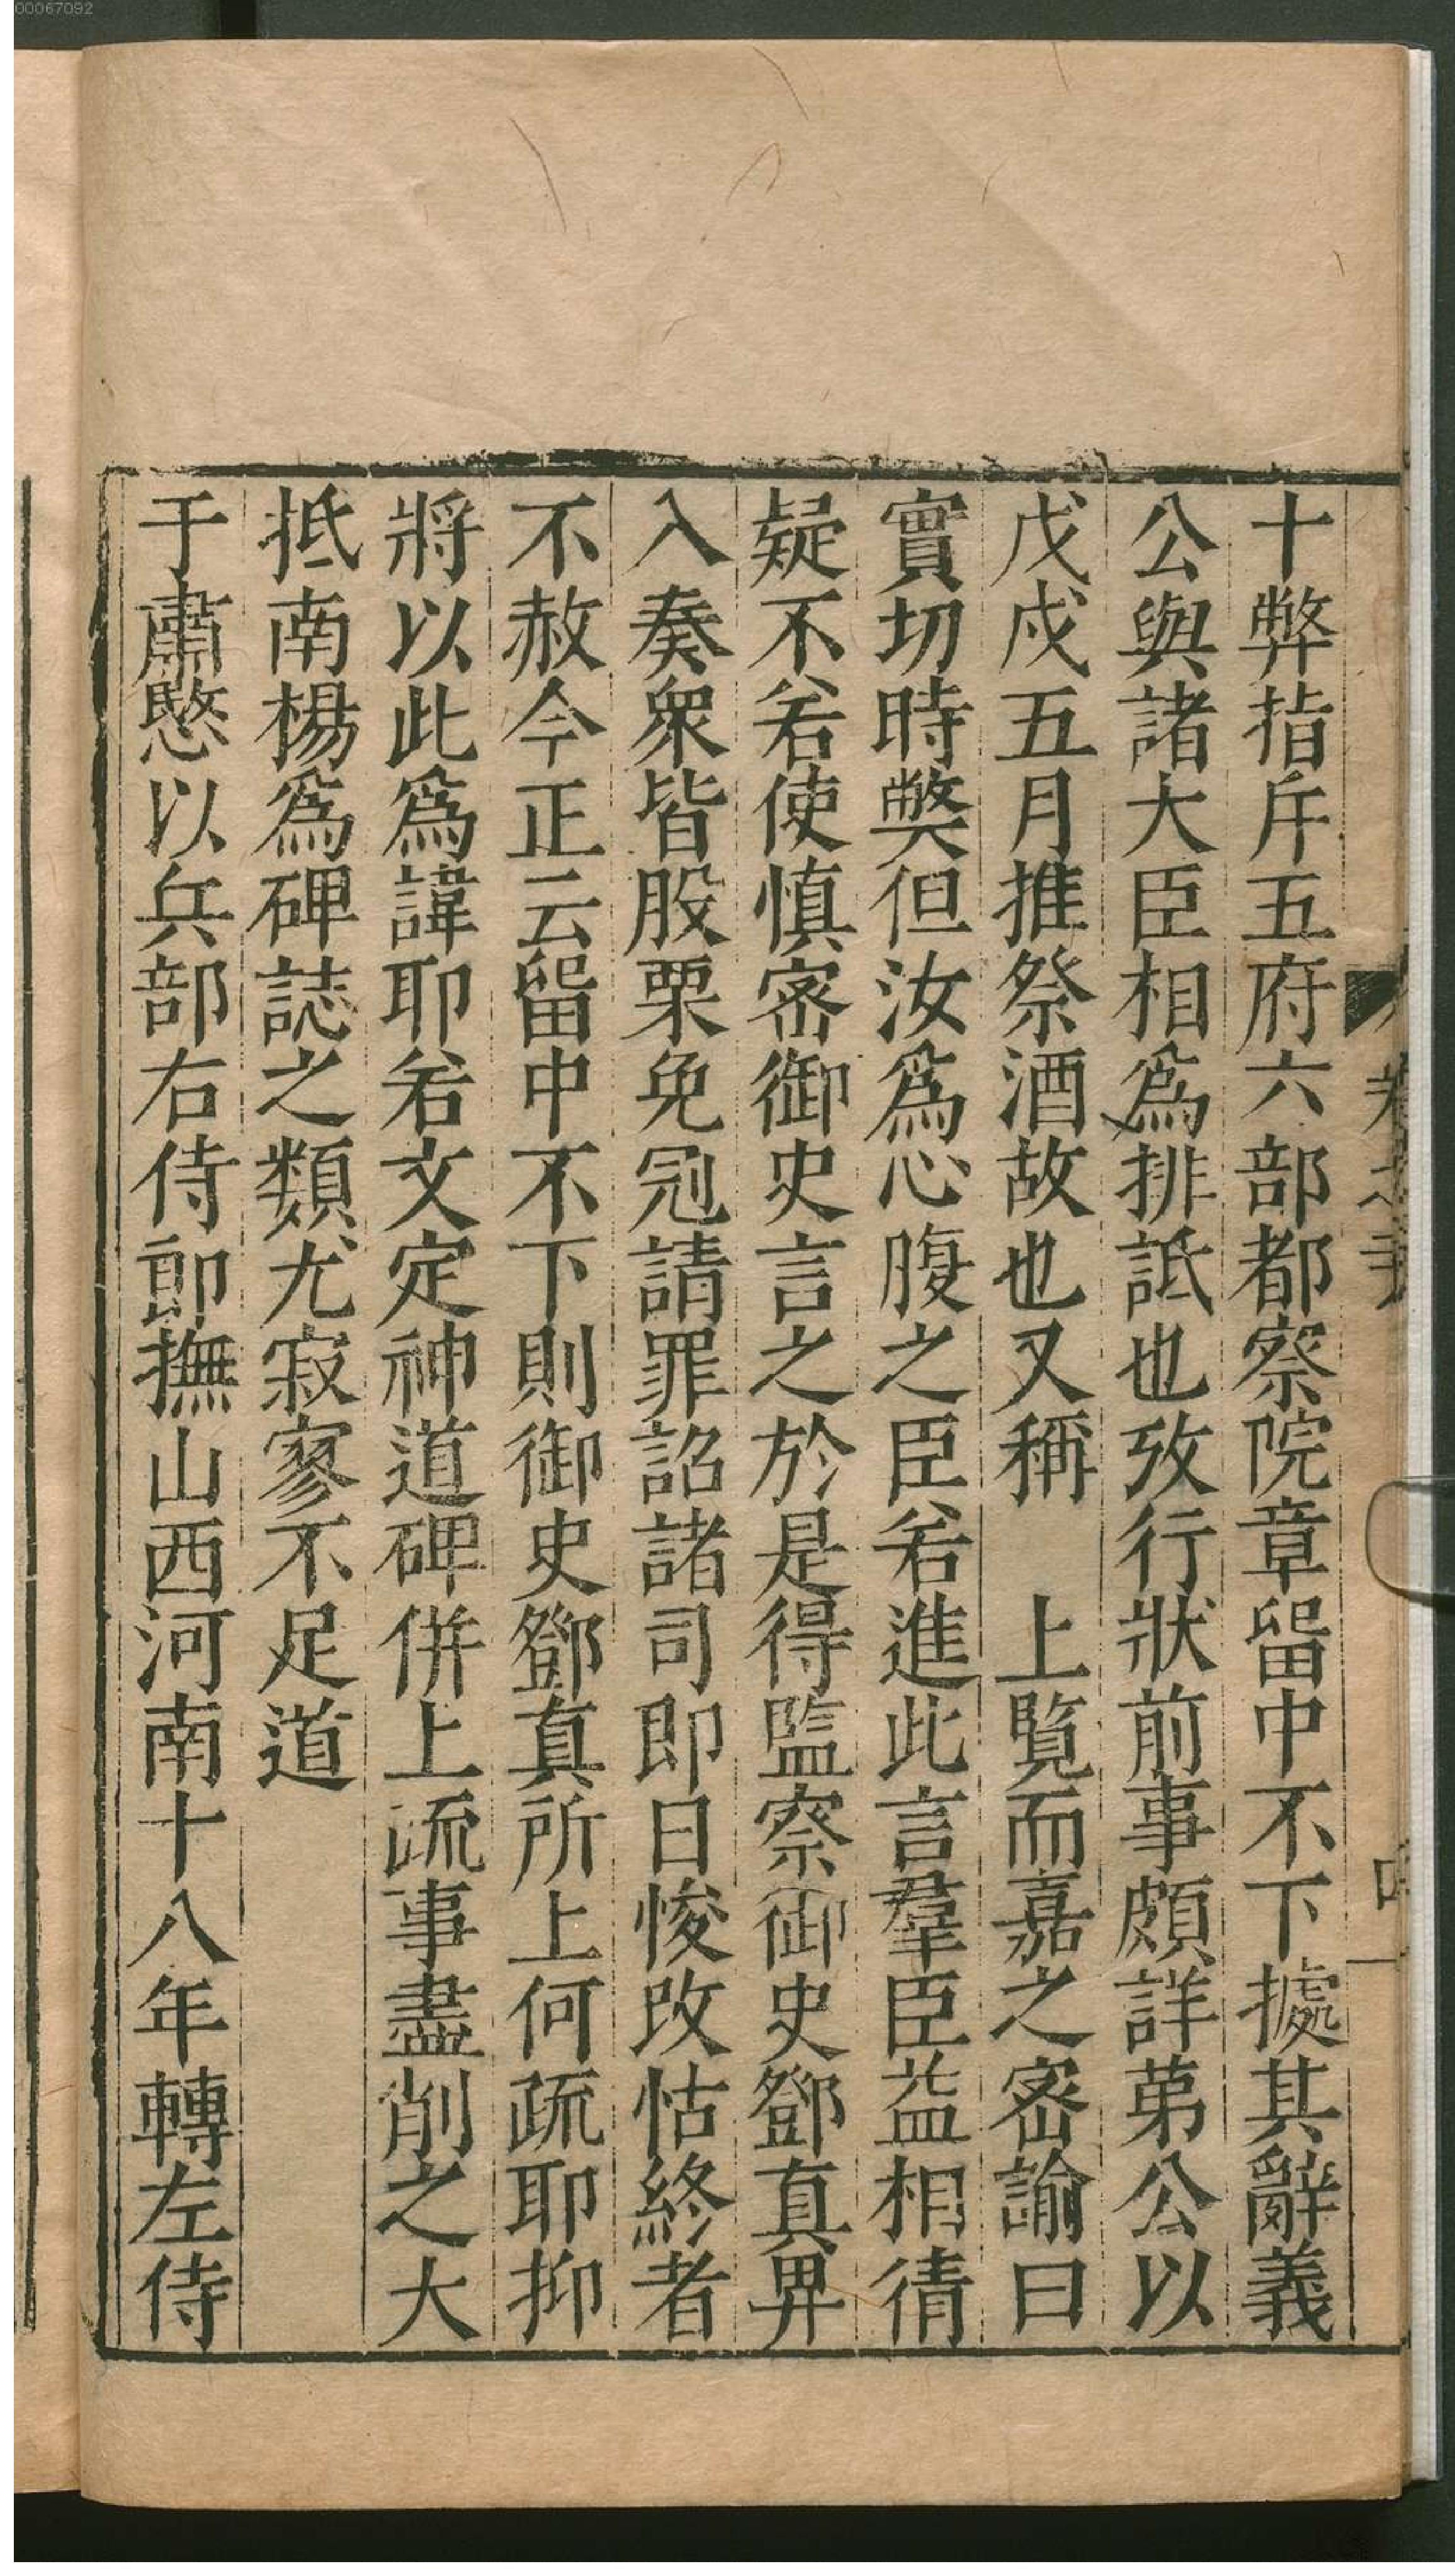 00067092
十弊指斥五府六部都察院章留中不下據其辭義
公與諸大臣相爲排詆也攷行狀前事頗詳苐公以
戊戌五月推祭酒故也又稱　上覽而嘉之密諭曰
實切時獘但汝爲心腹之臣若進此言羣臣益相猜
疑不若使慎密御史言之於是得監察御史鄧真畀
入奏衆皆股栗免冠請罪詔諸司即日悛改怙終者
不赦今正云留中不下則御史鄧真所上何疏耶抑
將以此爲諱耶若文定神道碑併上疏事盡削之大
抵南楊爲碑誌之類尤寂寥不足道
于肅愍以兵部右侍郎撫山西河南十八年轉左侍